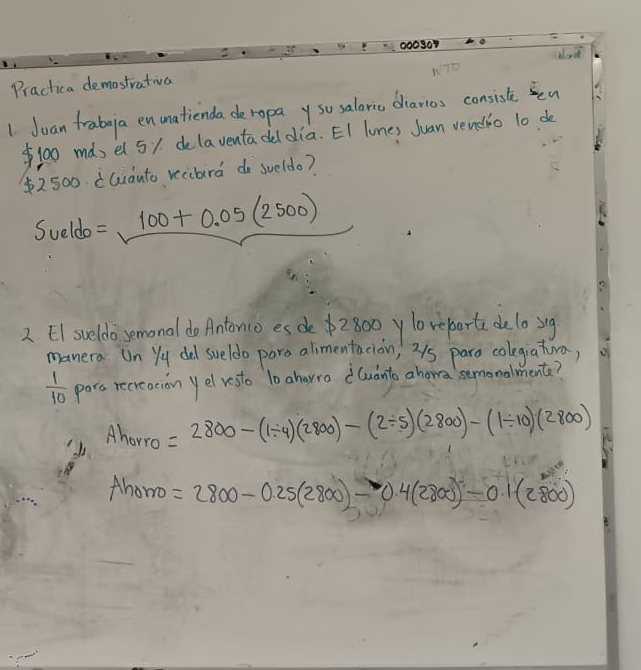 000307
Practica demostrativa
1. Juan trabaja en una tienda de ropa y su salario diarios consiste en
$100 más el 5% de la venta del día. El lunes Juan vendio lo de
$2500 ¿Cuánto recibirá de sueldo?
Sueldo = 100 + 0.05 (2500)
2. El sueldo semanal de Antonio es de $2800 y lo reparte de lo sig.
manera: Un 1/4 del sueldo para alimentación, 2/5 para colegiatura,
1/10 para recreación y el resto lo ahorra ¿Cuánto ahorra semanalmente?
Ahorro = 2800 - (1÷4)(2800) - (2÷5)(2800) - (1÷10)(2800)
Ahorro = 2800 - 0.25(2800) - 0.4(2800) - 0.1(2800)